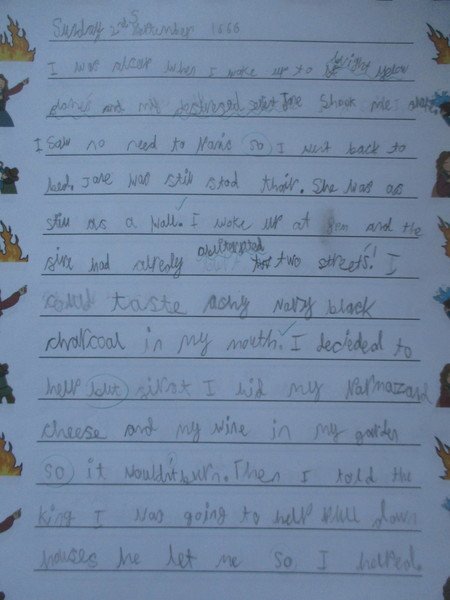 Sunday 2nd September 1666
I was when I woke up to bright yellow
and my Jane Shook me I
I Saw no need to Panic so I went back to
bed. Jane was still stod thair. She was as
still as a wall. I woke up at 8am and the
had alredy two streets! I
could taste ashy black
charcoal in my mouth. I decieded to
help but I hid my Parmazard
cheese and my wine in my garden
so it wouldn't burn. Then I told the
King I was going to help Pull down
houses he let me so I helped.